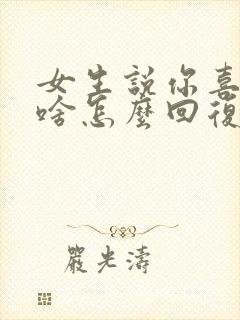 女生説你喜
啥怎麼回復
嚴光濤